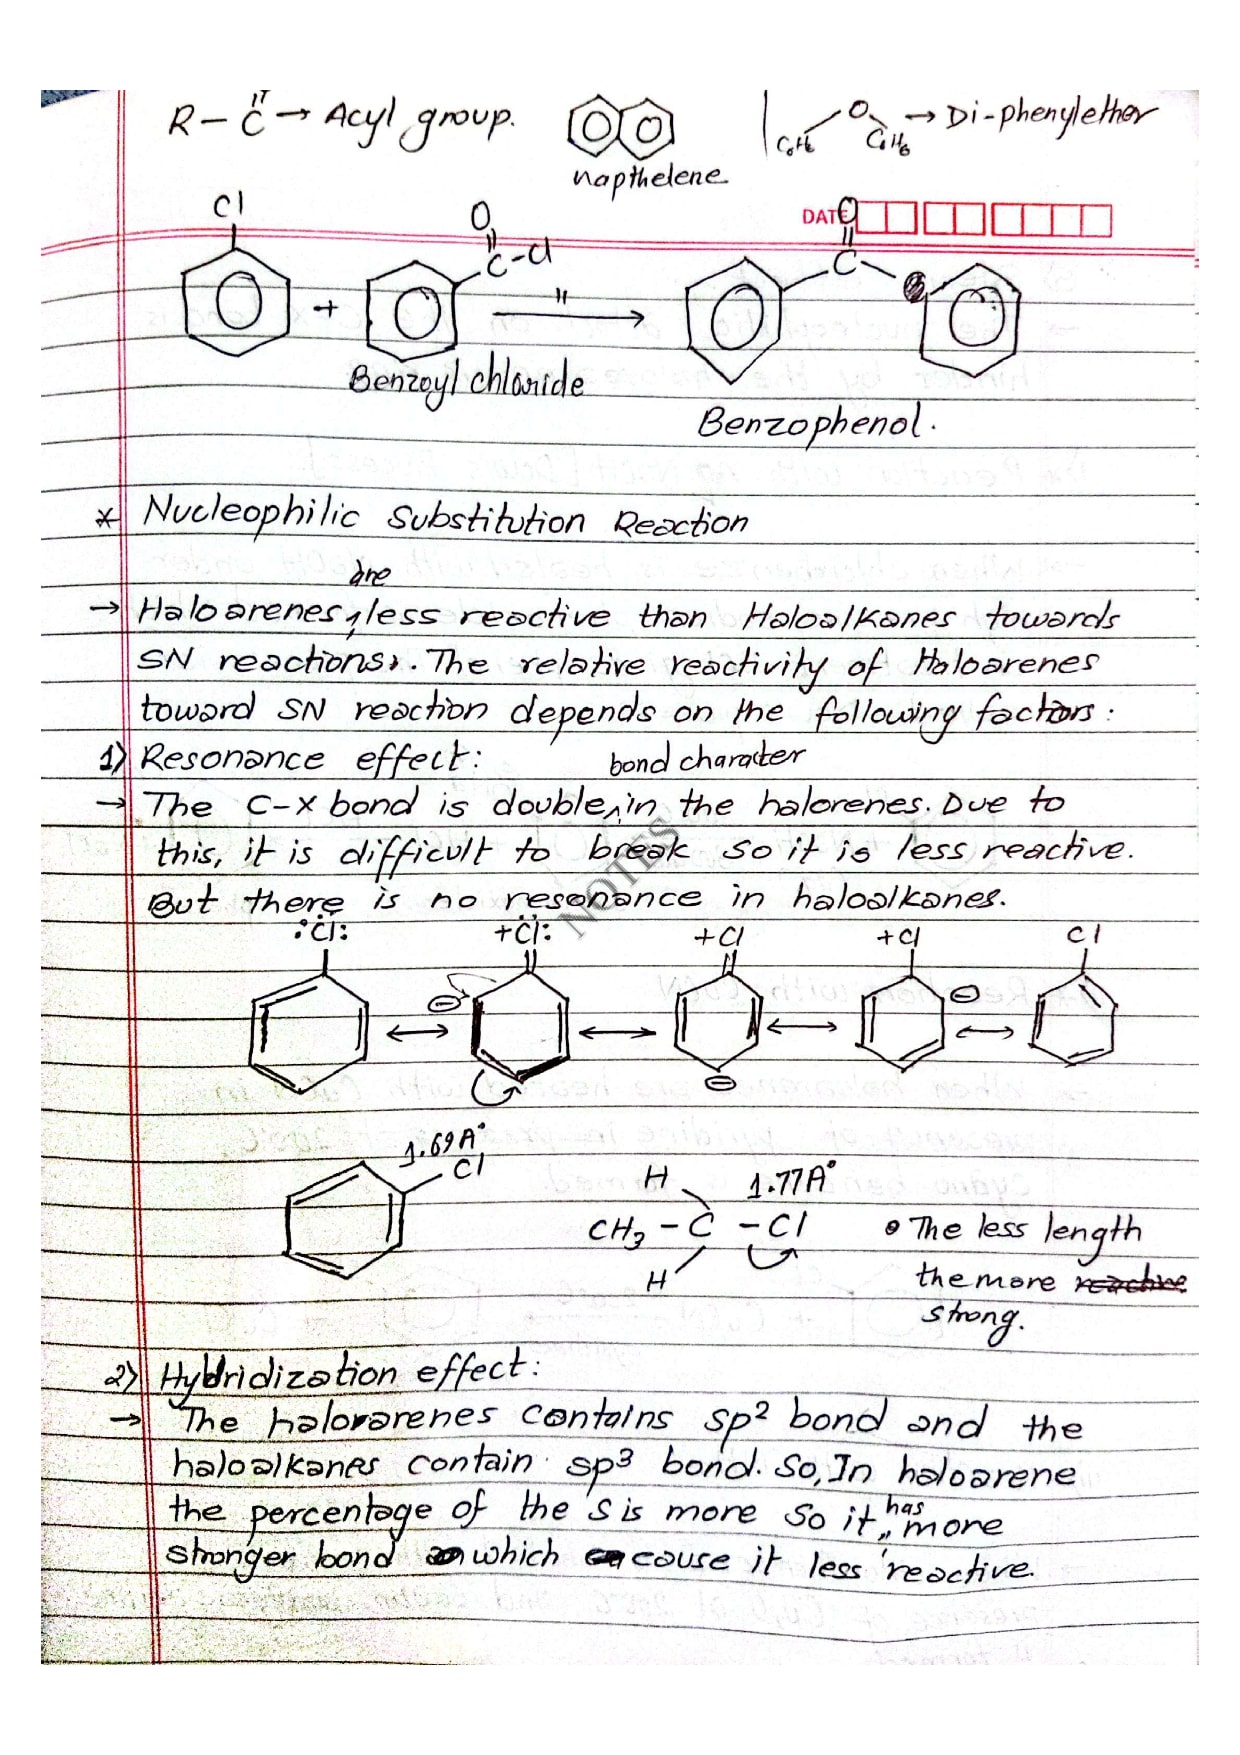 R – C → Acyl group.
O
C₆H₆ C₆H₆ → Di-phenylether
napthelene
DATE
Cl
O
C-Cl
O
C
+
"
Benzoyl chloride
Benzophenol.
* Nucleophilic Substitution Reaction
are
→ Haloarenes, less reactive than Haloalkanes towards
SN reactions. The relative reactivity of Haloarenes
toward SN reaction depends on the following factors:
1) Resonance effect: bond character
→ The C-X bond is double in the halorenes. Due to
this, it is difficult to break so it is less reactive.
But there is no resonance in haloalkanes.
NOTES
:Cl: +Cl: +Cl +Cl Cl
⊖ ⊖
⊖
1.69A°
Cl
H 1.77A°
CH₃ – C – Cl • The less length
H the more reactive
strong.
2) Hybridization effect:
→ The halorarenes contains sp² bond and the
haloalkanes contain sp³ bond. So, In haloarene
the percentage of the S is more So it has more
stronger bond which cause it less reactive.